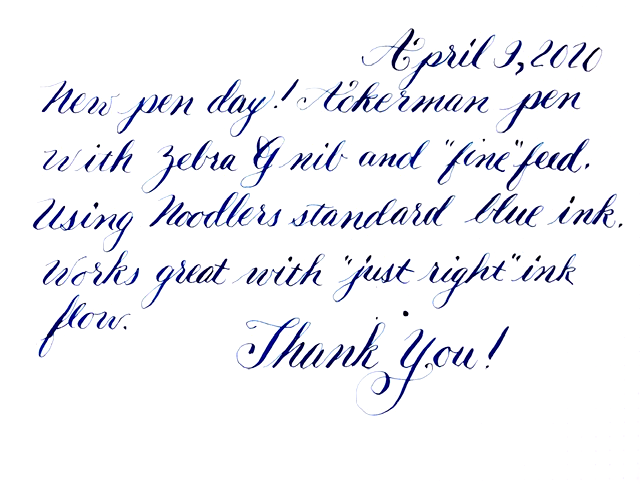 April 9, 2020
New pen day! Ackerman pen
with Zebra G nib and "fine" feed.
Using Noodlers standard blue ink.
Works great with "just right" ink
flow.
Thank You!